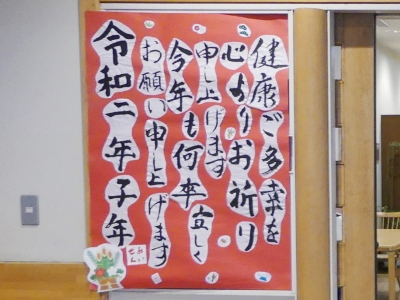 健康ご多幸を
心よりお祈り
申し上げます
今年も何卒宜しく
お願い申し上げます
令和二年子年